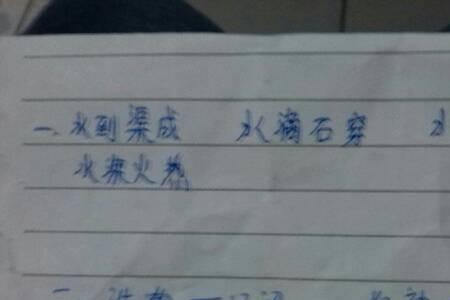 一、水到渠成 水滴石穿 水
水深火热